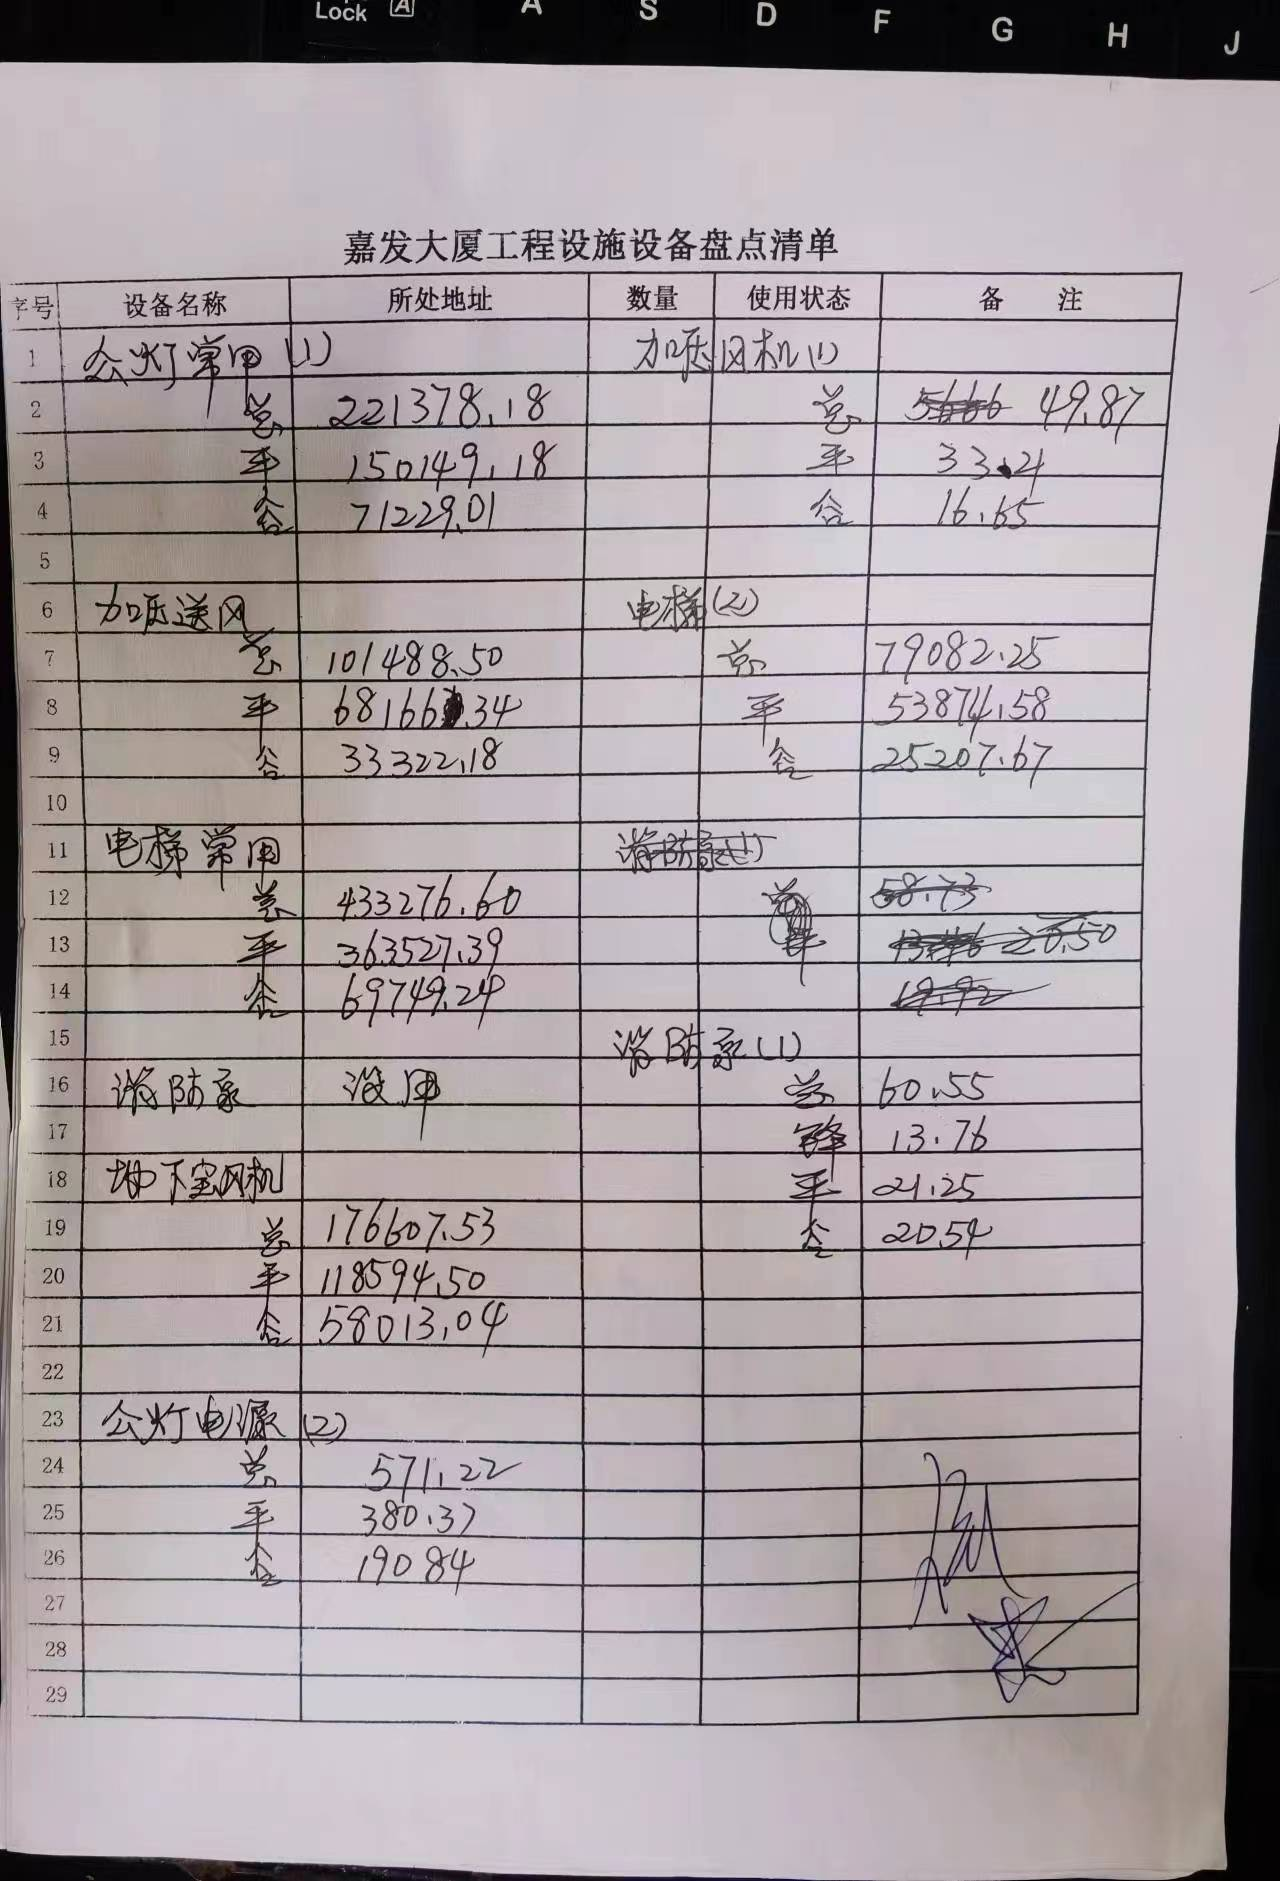 Lock A
A S D F G H J
嘉发大厦工程设施设备盘点清单
序号 设备名称 所处地址 数量 使用状态 备 注
1 公灯常用(1) 加压风机(1)
2 总 221378.18 总 49.87
3 平 150149.18 平 33.21
4 谷 71229.01 谷 16.65
5
6 加压送风 电梯(2)
7 总 101488.50 总 79082.25
8 平 68166.34 平 53874.58
9 谷 33322.18 谷 25207.67
10
11 电梯常用 消防泵(1)
12 总 433276.60 总 58.73
13 平 363527.39 20.50
14 谷 69749.24 19.92
15 消防泵(1)
16 消防泵 没用 总 60.55
17 13.76
18 地下室风机 平 21.25
19 总 176607.53 谷 20.54
20 平 118594.50
21 谷 58013.04
22
23 公灯电源(2)
24 总 571.22
25 平 380.37
26 谷 190 84
27
28
29